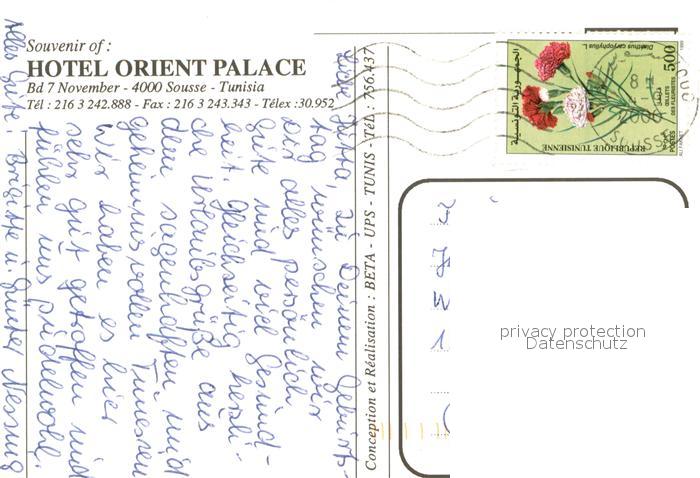 Souvenir of :
HOTEL ORIENT PALACE
Bd 7 November - 4000 Sousse - Tunisia
Tél : 216 3 242.888 - Fax : 216 3 243.343 - Télex :30.952
Liebe Jutta, zu Deinem Geburts-
tag wünschen wir
Dir alles persönlich
Gute und viel Gesund-
heit. Gleichzeitig herzli-
che Urlaubsgrüße aus
dem sagenhaften und
geheimnisvollen Tunesien
Wir haben es hier
sehr gut getroffen und
fühlen uns pudelwohl.
Alles Gute! Brigitte u. Günter Nessing
Conception et Réalisation : BETA - UPS - TUNIS - Tél. : 756.437
Dianthus caryophyllus L.
500
الجمهورية التونسية
REPUBLIQUE TUNISIENNE
OEILLETS
DES FLEURISTES
POSTES
privacy protection
Datenschutz